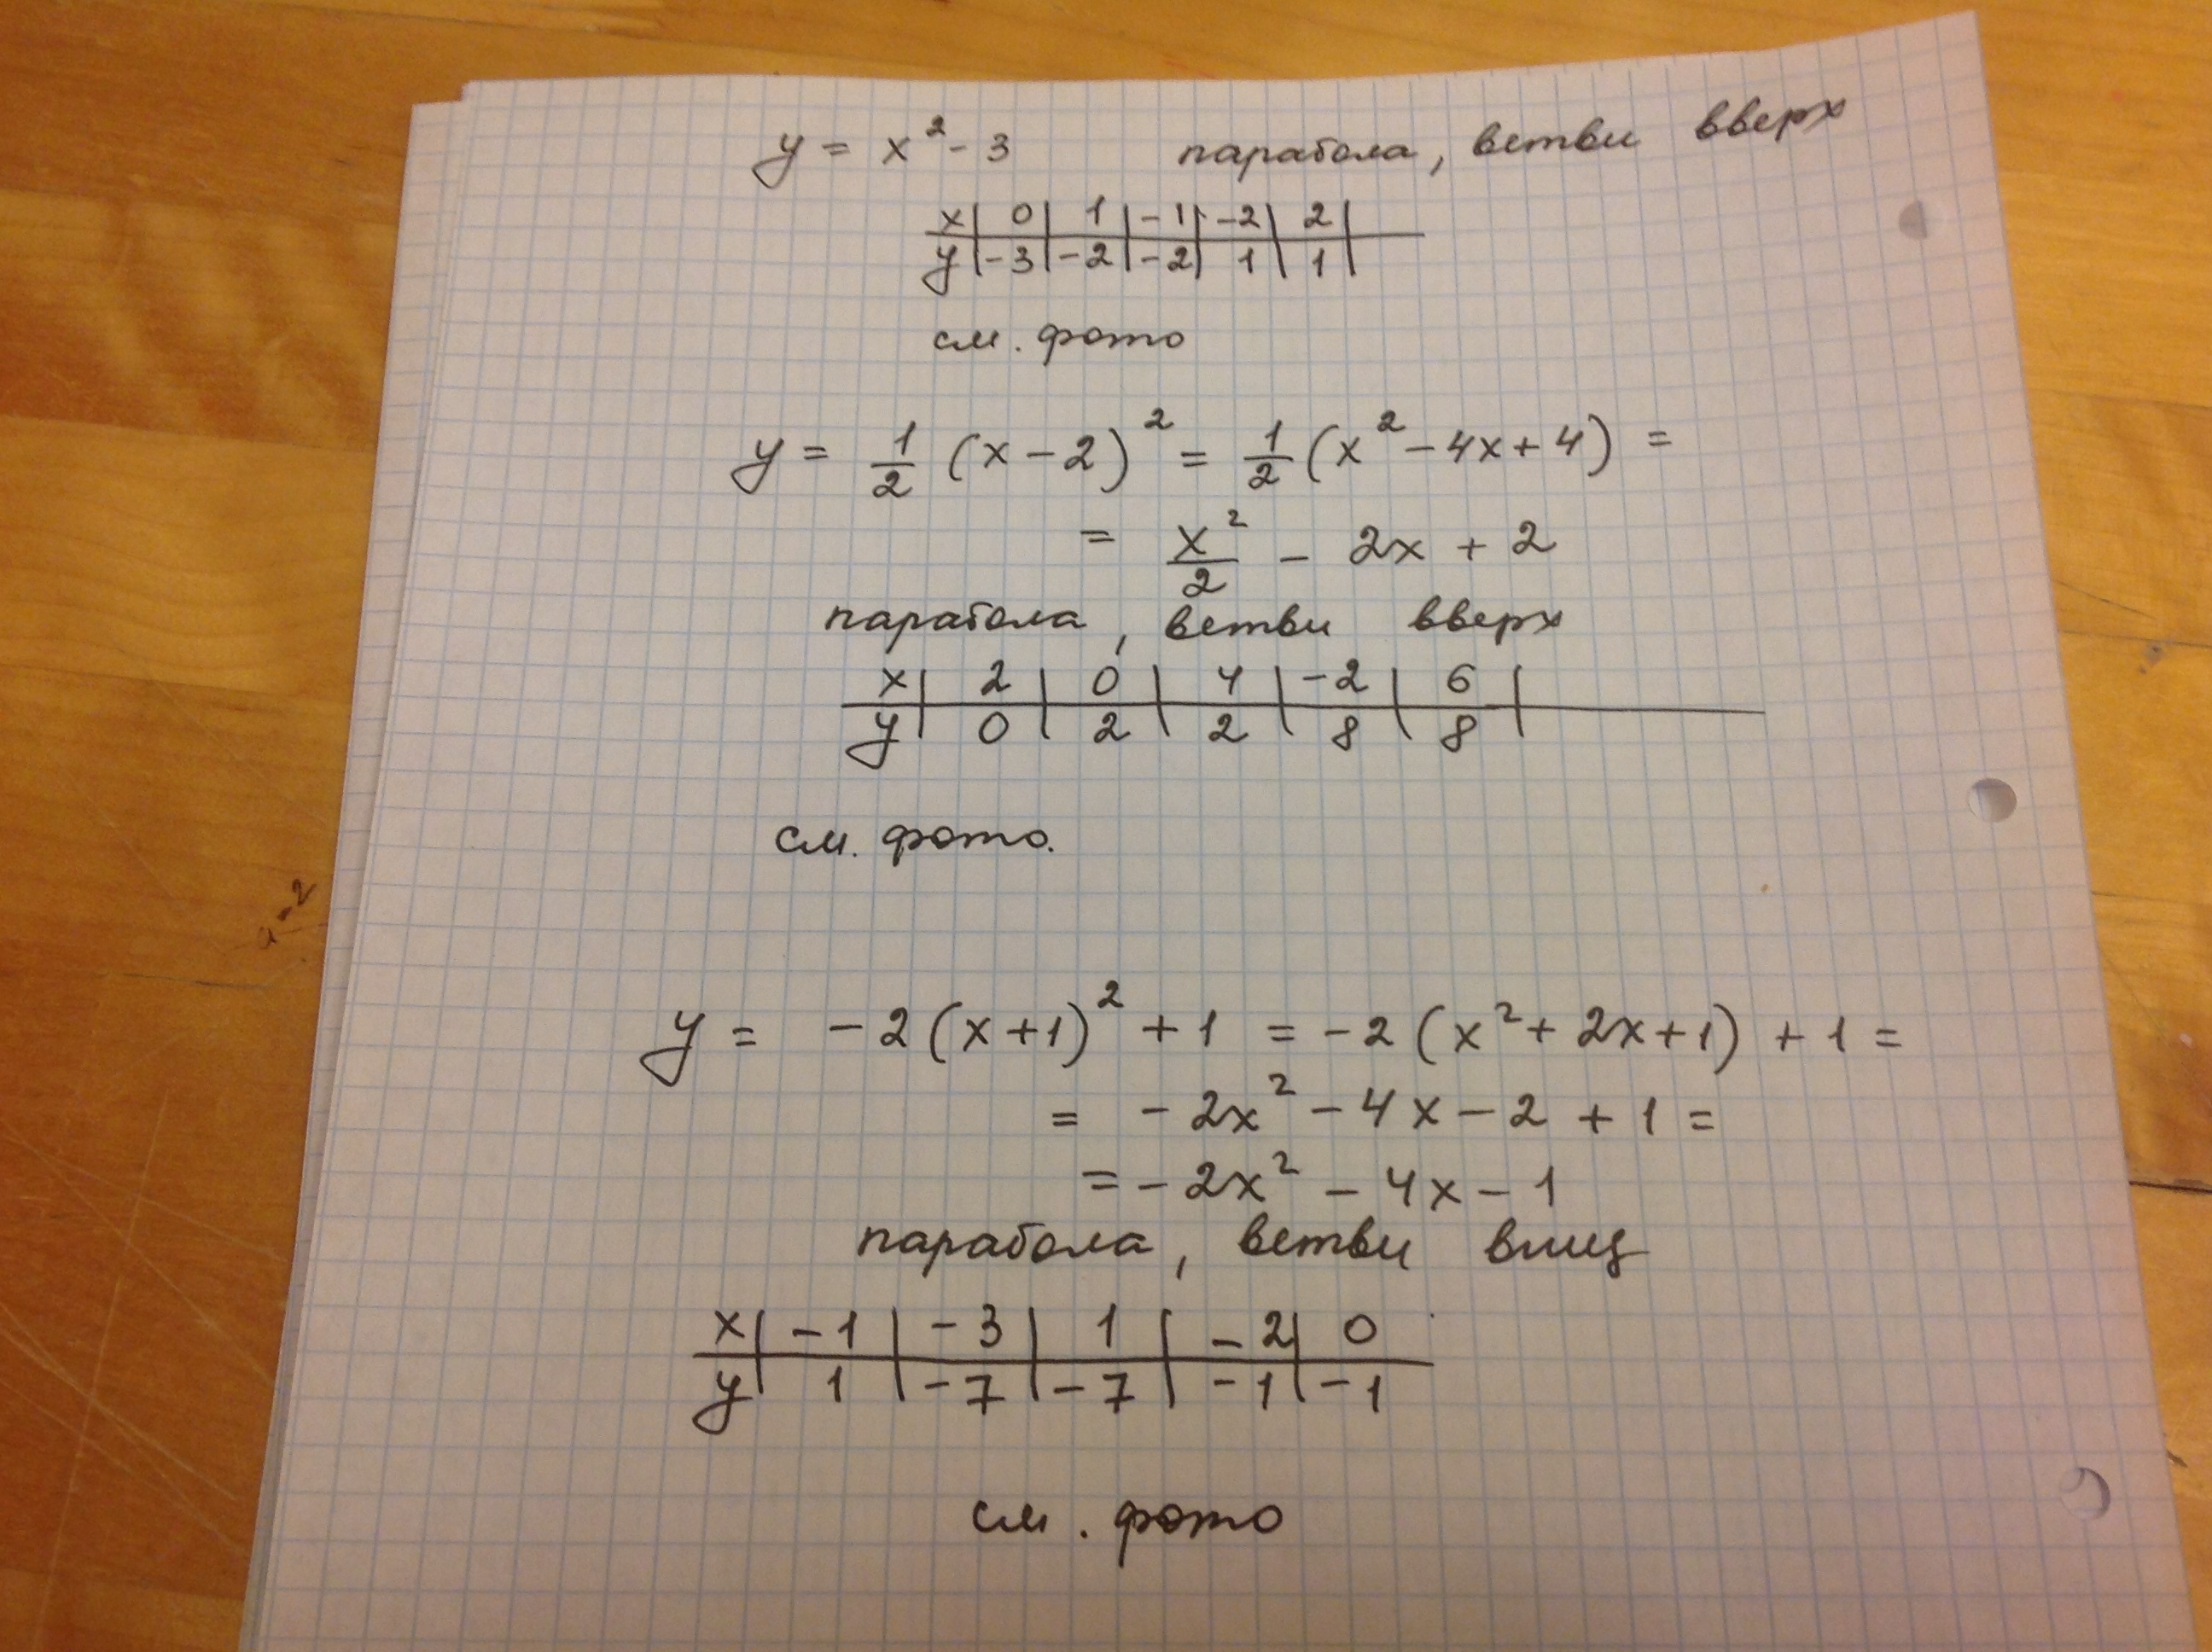 y = x² - 3 парабола, ветви вверх
x | 0 | 1 | -1 | -2 | 2 |
y | -3 | -2 | -2 | 1 | 1 |
см. фото
y = 1/2 (x - 2)² = 1/2 (x² - 4x + 4) =
= x²/2 - 2x + 2
парабола, ветви вверх
x | 2 | 0 | 4 | -2 | 6 |
y | 0 | 2 | 2 | 8 | 8 |
см. фото.
y = -2(x+1)² + 1 = -2(x² + 2x + 1) + 1 =
= -2x² - 4x - 2 + 1 =
= -2x² - 4x - 1
парабола, ветви вниз
x | -1 | -3 | 1 | -2 | 0
y | 1 | -7 | -7 | -1 | -1
см. фото